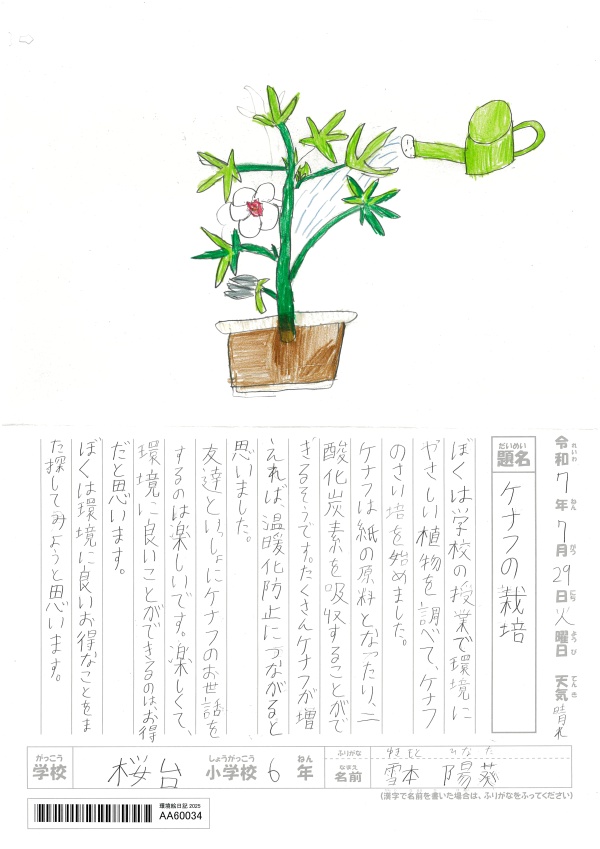 令和7年7月29日火曜日 天気晴れ
れいわ ねん がつ にち ようび てんき
だいめい
題名 ケナフの栽培
ぼくは学校の授業で環境に
やさしい植物を調べて、ケナフ
のさい培を始めました。
ケナフは紙の原料となったり、二
酸化炭素を吸収することがで
きるそうです。たくさんケナフが増
えれば、温暖化防止につながると
思いました。
友達といっしょにケナフのお世話を
するのは楽しいです。楽しくて、
環境に良いことができるのは、お得
だと思います。
ぼくは環境に良いお得なことをま
た探してみようと思います。
がっこう しょうがっこう ねん
学校 桜台 小学校 6年
ふりがな ゆきもと ひなた
なまえ
名前 雪本 陽葵
(漢字で名前を書いた場合は、ふりがなをふってください)
環境絵日記 2025
AA60034